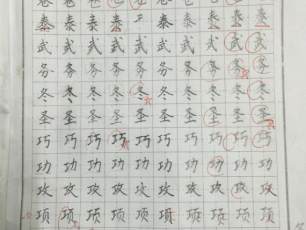 泰泰泰泰泰泰泰泰泰
武武武武武武武武武武
务务务务务务务务务务
冬冬冬冬冬冬冬冬冬冬
圣圣圣圣圣圣圣圣圣圣
巧巧巧巧巧巧巧巧巧巧
功功功功功功功功功功
攻攻攻攻攻攻攻攻攻攻
项项项项项项项项项项